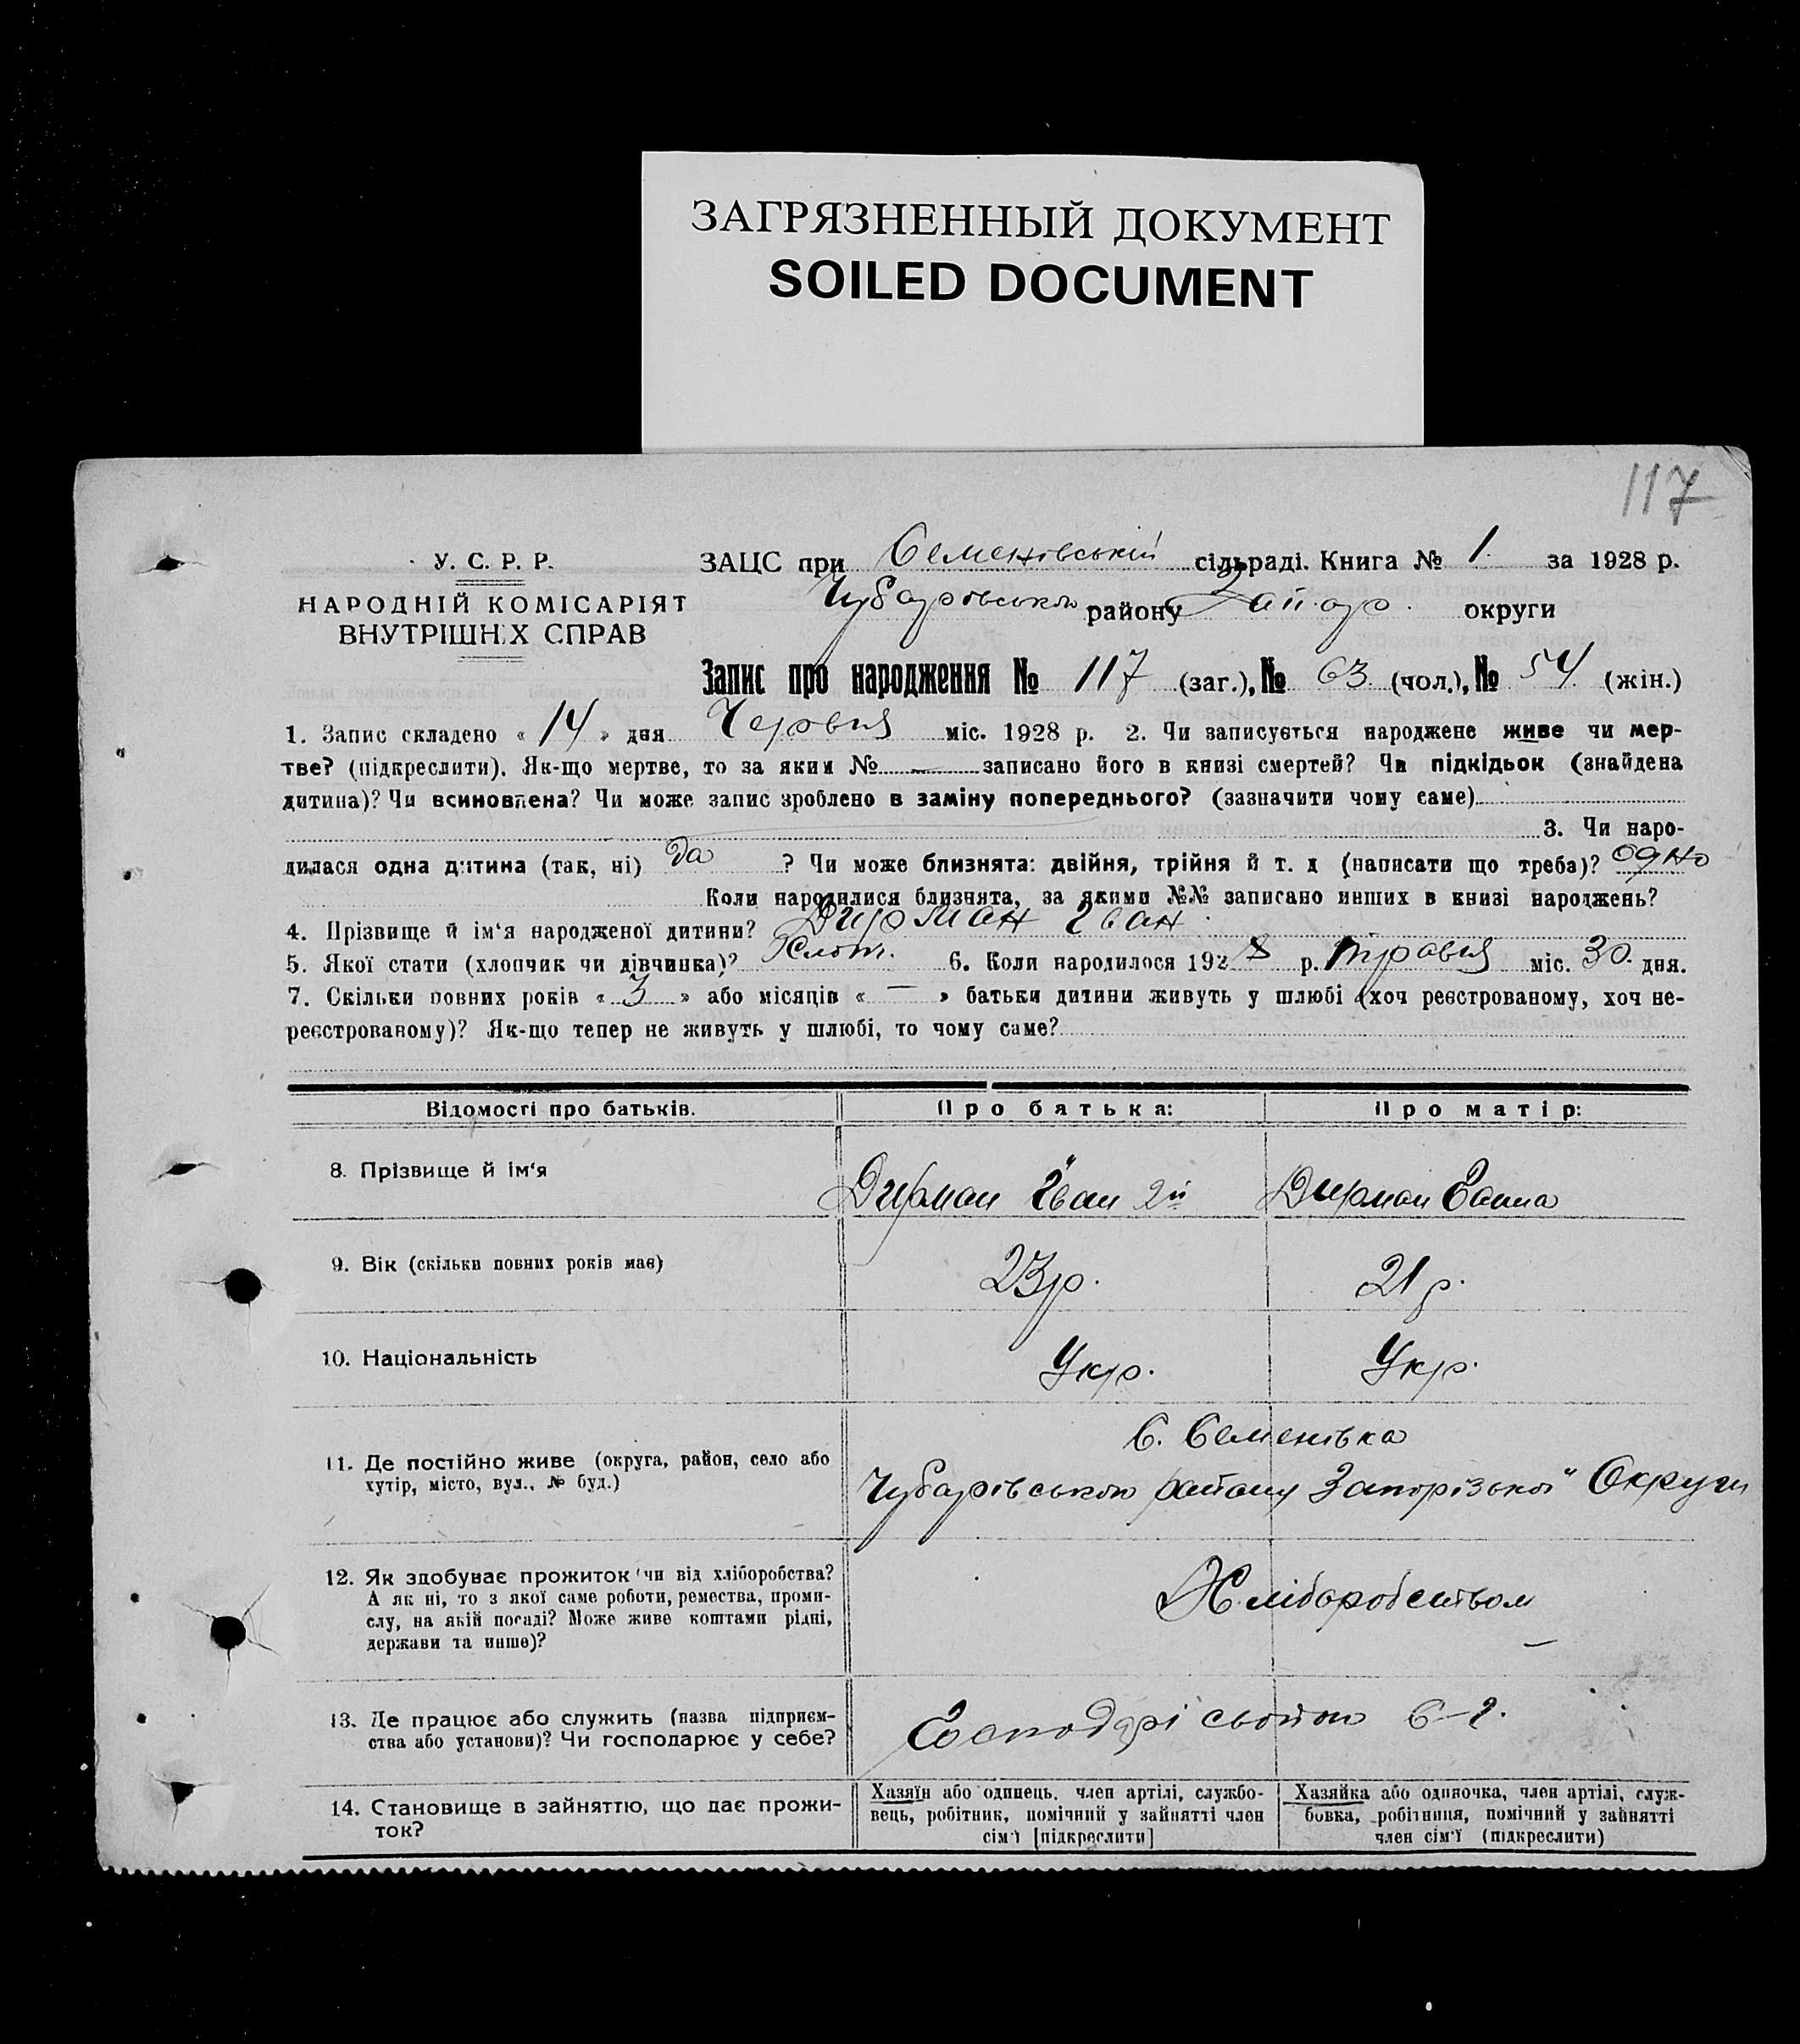 ЗАГРЯЗНЕННЫЙ ДОКУМЕНТ
SOILED DOCUMENT
117
У. С. Р. Р.
НАРОДНІЙ КОМІСАРІЯТ
ВНУТРІШНІХ СПРАВ
ЗАЦС при Семенівській сільраді. Книга № 1. за 1928 р.
Чубарівського району Запор. округи
Запис про народження № 117 (заг.), № 63 (чол.), № 54 (жін.)
1. Запис складено « 14 » дня Червня міс. 1928 р. 2. Чи записується народжене живе чи мер-
тве? (підкреслити). Як-що мертве, то за яким № — записано його в книзі смертей? Чи підкідьок (знайдена
дитина)? Чи всиновлена? Чи може запис зроблено в заміну попереднього? (зазначити чому саме)
3. Чи наро-
дилася одна дитина (так, ні) да ? Чи може близнята: двійня, трійня й т. д (написати що треба)? одно
Коли народилися близнята, за якими №№ записано инших в книзі народжень?
4. Прізвище й ім'я народженої дитини? Дирман Іван
5. Якої стати (хлопчик чи дівчинка)? 6. Коли народилося 1928 р. травня міс. 30 дня.
7. Скільки повних років « 3 » або місяців « — » батьки дитини живуть у шлюбі (хоч реєстрованому, хоч не-
реєстрованому)? Як-що тепер не живуть у шлюбі, то чому саме?
Відомості про батьків.
Про батька:
Про матір:
8. Прізвище й ім'я
Дирман Іван 2й
Дирман Ганна
9. Вік (скільки повних років має)
23 р.
21 р.
10. Національність
Укр.
Укр.
11. Де постійно живе (округа, район, село або
хутір, місто, вул., № буд.)
С. Семенівка
Чубарівського району Запорізької Округи
12. Як здобуває прожиток (чи від хліборобства?
А як ні, то з якої саме роботи, ремества, проми-
слу, на якій посаді? Може живе коштами рідні,
держави та инше)?
Хліборобством
13. Де працює або служить (назва підприєм-
ства або установи)? Чи господарює у себе?
Господарі свойого
14. Становище в зайняттю, що дає прожи-
ток?
Хазяїн або одинець, член артілі, службо-
вець, робітник, помічний у зайнятті член
сім'ї [підкреслити]
Хазяйка або одиночка, член артілі, служ-
бовка, робітниця, помічний у зайнятті
член сім'ї (підкреслити)